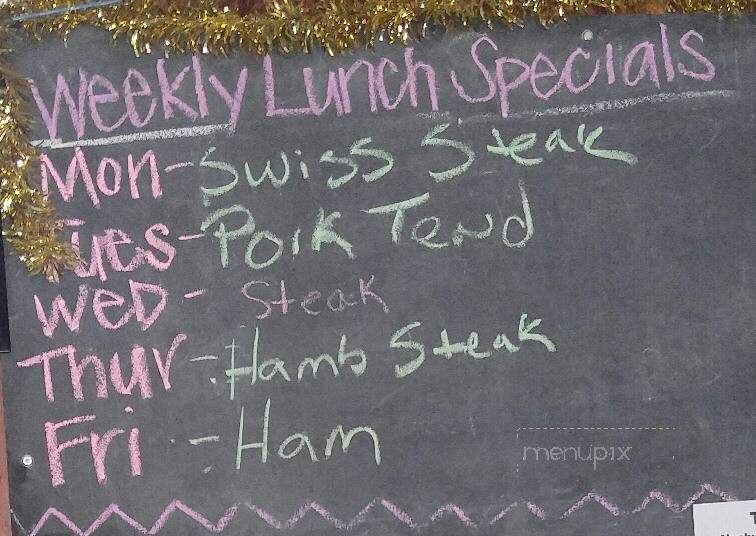 Weekly Lunch Specials
Mon-Swiss Steak
Tues-Pork Tend
WED- Steak
Thur-Hamb Steak
Fri-Ham
menupix